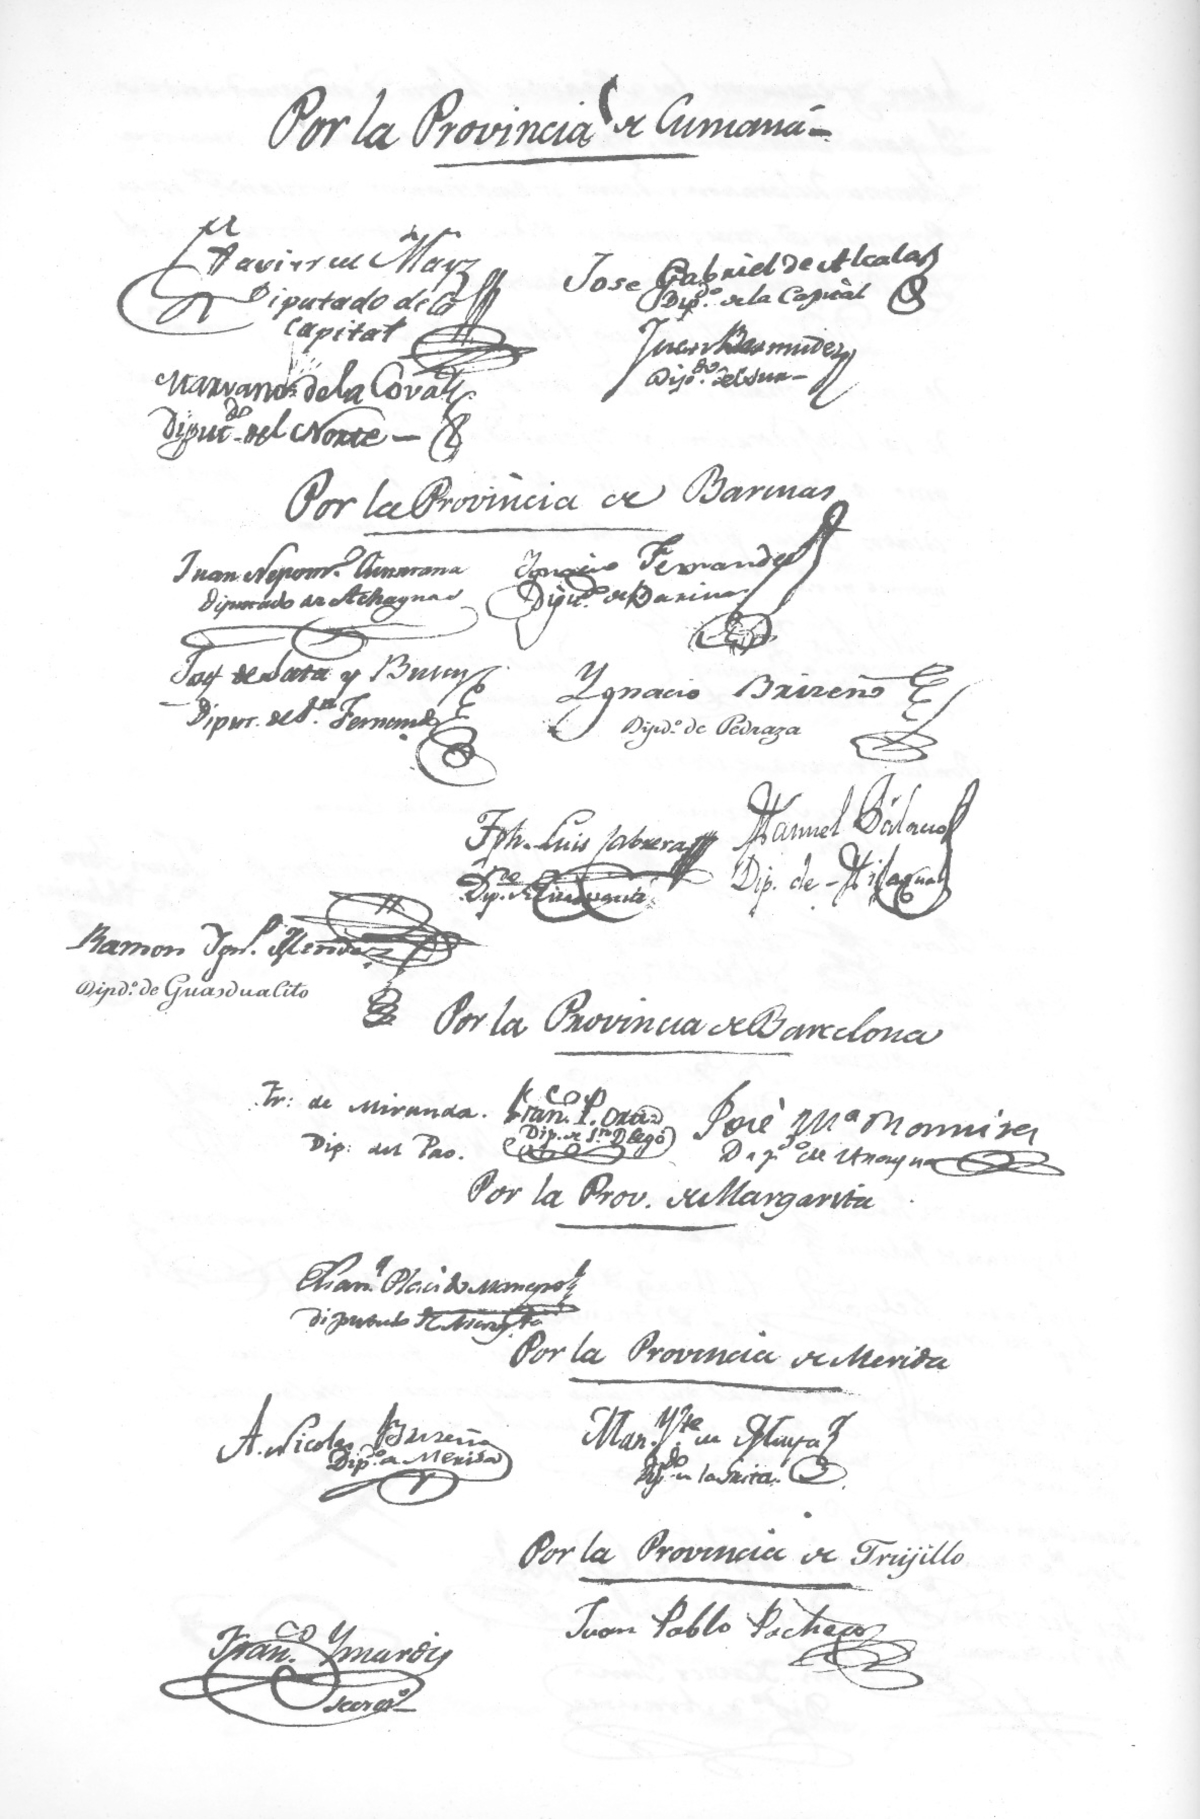 Por la Provincia de Cumaná
Fr Xavier de Mayz
Diputado de la
Capital
Jose Gabriel de Alcala
Dip.do de la Capital
Juan Bermudez
Dip.do del Sur
Mariano de la Cova
Diput.do del Norte
Por la Provincia de Barinas
Juan Nepom.o Quintana
Diputado de Achaguas
Ygnacio Fernandez
Diput.do de Barinas
José de Sata y Bussy
Diput. de S.n Fernando
Ygnacio Brizeño
Dipdo. de Pedraza
Jph. Luis Cabrera
Dip.do de Guanarito
Manuel Palacio
Dip. de Mijagual
Ramon Ign.o Mendez
Dipdo. de Guasdualito
Por la Provincia de Barcelona
Fr: de Miranda.
Dip: del Pao.
Fran.co P. Ortiz
Dip. de S.n Diego
José M.a Ramirez
Dip.do de Aragua
Por la Prov. de Margarita
Man.l Placido Maneyro
Diputado de Marg.ta
Por la Provincia de Merida
A. Nicolas Brizeño
Dip.o de Merida
Man. V.te de Maya
Dip.do de la Grita.
Por la Provincia de Trujillo
Juan Pablo Pacheco
Fran.co Ysnardi
Secret.o